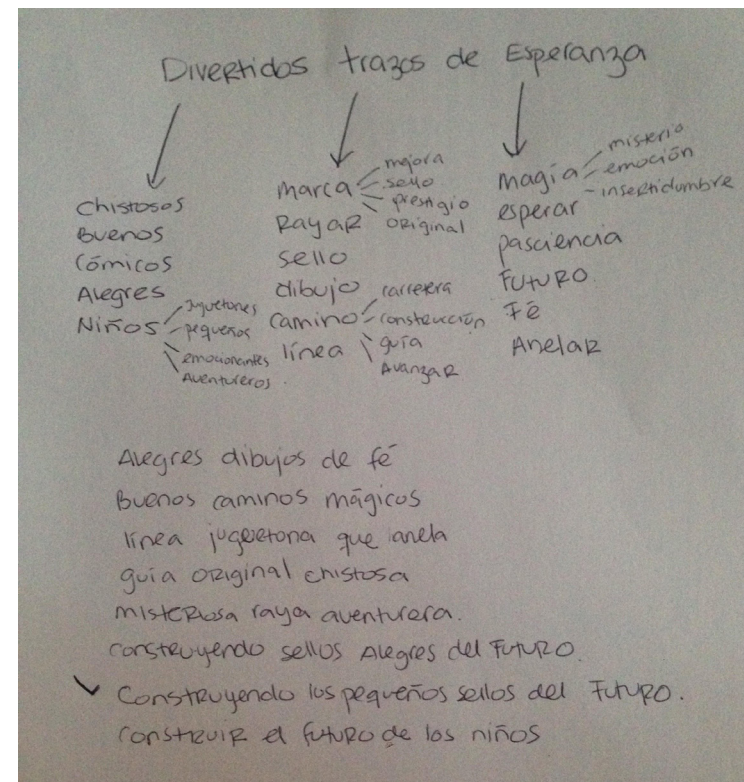 Divertidos trazos de Esperanza
Chistosos
Buenos
Cómicos
Alegres
Niños
juguetones
pequeños
emocionantes
Aventureros.
marca
mejora
sello
prestigio
original
Rayar
sello
dibujo
camino
carretera
construcción
guía
Avanzar
línea
magia
misterio
emoción
insertidumbre
esperar
pasciencia
Futuro
Fé
Anelar
Alegres dibujos de fé
Buenos caminos mágicos
línea juguetona que anela
guía original chistosa
misteriosa raya aventurera.
construyendo sellos Alegres del Futuro.
✓ Construyendo los pequeños sellos del Futuro.
construir el futuro de los niños